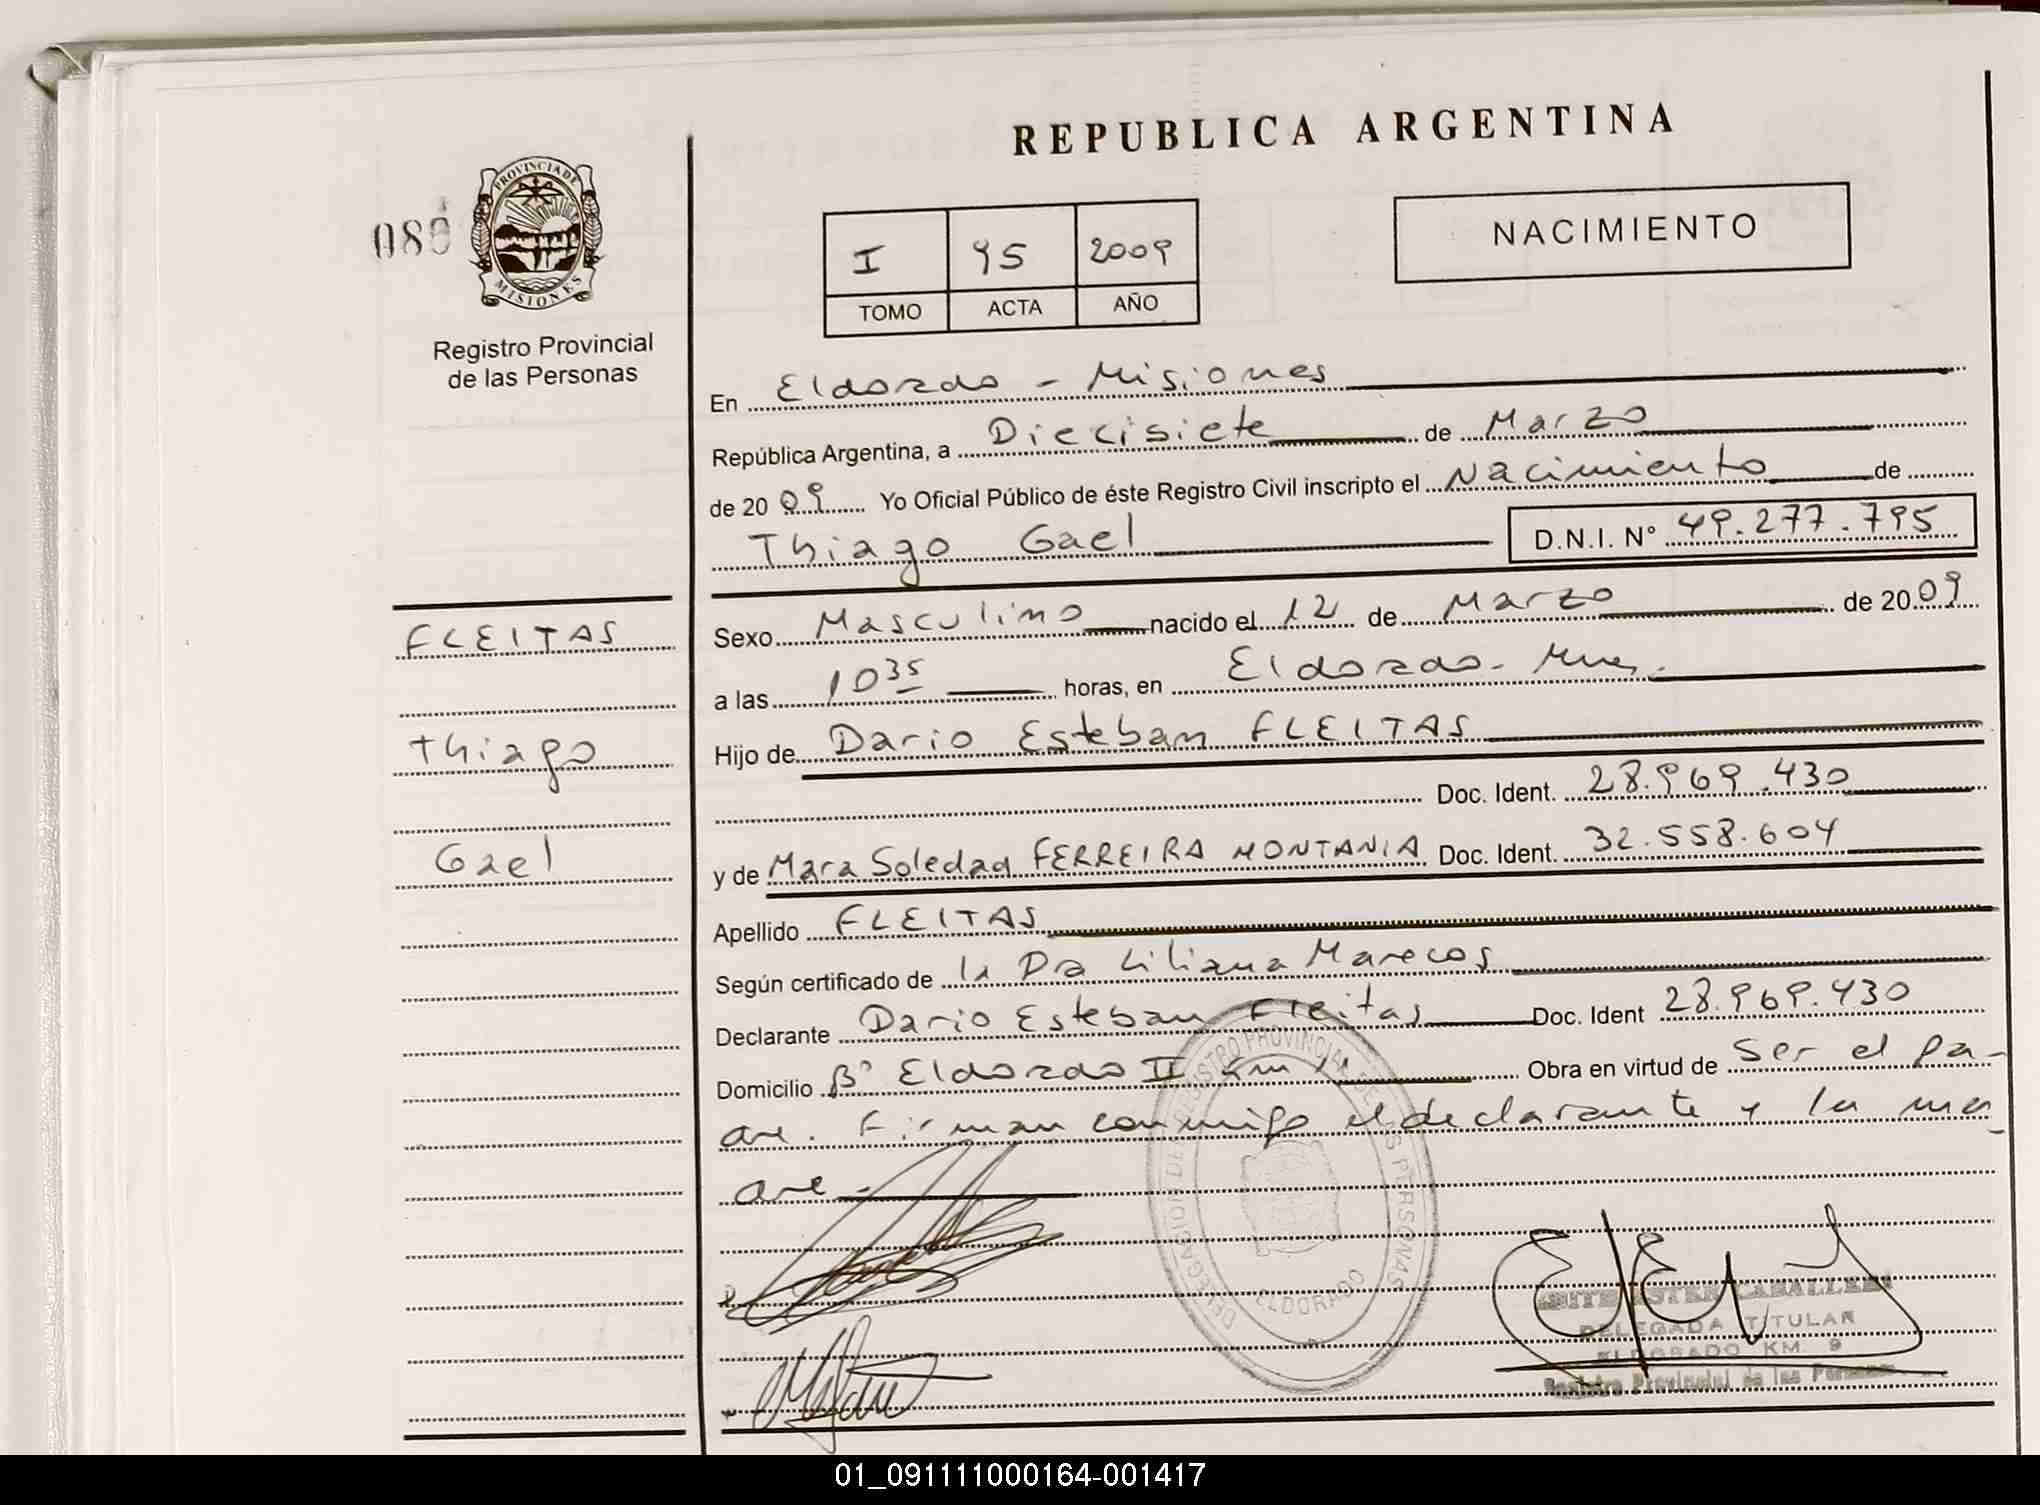 REPUBLICA ARGENTINA
PROVINCIA DE
MISIONES
Registro Provincial
de las Personas
I 95 2009
TOMO ACTA AÑO
NACIMIENTO
En Eldorado - Misiones
República Argentina, a Diecisiete de Marzo
de 2009 Yo Oficial Público de éste Registro Civil inscripto el Nacimiento de
Thiago Gael D.N.I. N° 49.277.795
FLEITAS
Thiago
Gael
Sexo Masculino nacido el 12 de Marzo de 2009
a las 10 35 horas, en Eldorado - Mnes.
Hijo de Dario Esteban FLEITAS
Doc. Ident. 28.969.430
y de Mara Soledad FERREIRA MONTANIA Doc. Ident. 32.558.604
Apellido FLEITAS
Según certificado de la Dra Liliana Marecos
Declarante Dario Esteban Fleitas Doc. Ident 28.969.430
Domicilio B° Eldorado II Km Obra en virtud de Ser el pa-
dre. Firman conmigo el declarante y la ma-
dre -
DELEGACION DEL REGISTRO PROVINCIAL DE LAS PERSONAS
ELDORADO
ESTER CABALLERO
DELEGADA TITULAR
ELDORADO KM. 9
Registro Provincial de las Personas
01_091111000164-001417